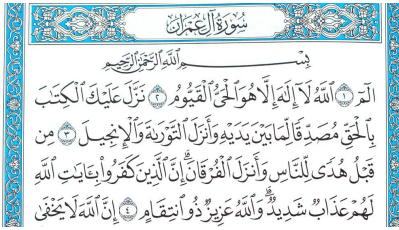 سُورَةُ آلِ عِمْرَانَ
بِسْمِ اللَّهِ الرَّحْمَٰنِ الرَّحِيمِ
الٓمٓ ١ اللَّهُ لَآ إِلَٰهَ إِلَّا هُوَ الْحَيُّ الْقَيُّومُ ٢ نَزَّلَ عَلَيْكَ الْكِتَٰبَ
بِالْحَقِّ مُصَدِّقًا لِّمَا بَيْنَ يَدَيْهِ وَأَنزَلَ التَّوْرَىٰةَ وَالْإِنجِيلَ ٣ مِن
قَبْلُ هُدًى لِّلنَّاسِ وَأَنزَلَ الْفُرْقَانَ ۗ إِنَّ الَّذِينَ كَفَرُوا۟ بِـَٔايَٰتِ اللَّهِ
لَهُمْ عَذَابٌ شَدِيدٌ ۗ وَاللَّهُ عَزِيزٌ ذُو انتِقَامٍ ٤ إِنَّ اللَّهَ لَا يَخْفَىٰ